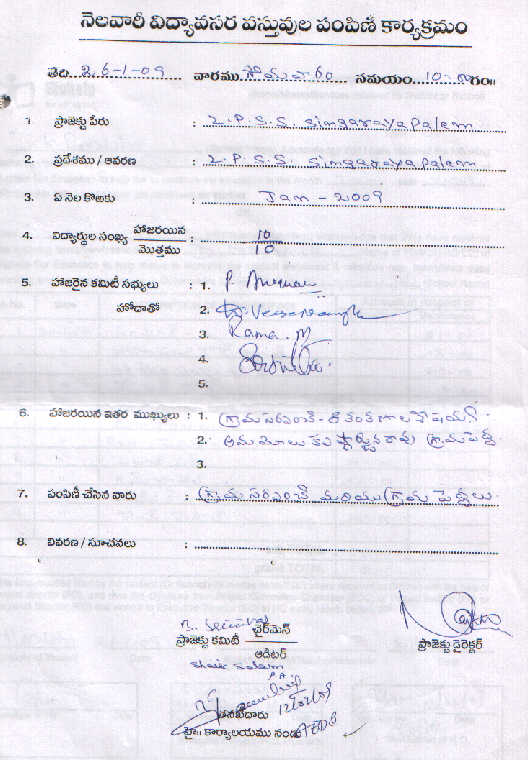 నెలవారీ విద్యావసర వస్తువుల పంపిణీ కార్యక్రమం
తేది 26-1-09 వారము సోమవారం సమయం 10-00గం॥
1. ప్రాజెక్టు పేరు : 2.P.S.S. Singarayapalem
2. ప్రదేశము / ఆవరణ : 2.P.S.S. Singarayapalem
3. ఏ నెల కొఱకు : Jan - 2009
4. విద్యార్ధుల సంఖ్య హాజరయిన / మొత్తము : 10 / 10
5. హాజరైన కమిటీ సభ్యులు : 1.
హోదాతో 2.
3. Rama. M
4.
5.
6. హాజరయిన ఇతర ముఖ్యులు : 1. గ్రామ సర్పంచ్ -
2. గ్రామ పెద్ద
3.
7. పంపిణీ చేసిన వారు : గ్రామ సర్పంచ్ మరియు గ్రామ పెద్దలు
8. వివరణ / సూచనలు :
ప్రాజెక్టు కమిటీ చైర్‌మెన్ / ఆడిటర్
ప్రాజెక్టు డైరెక్టర్
Shaik Salam
12/02/09
తనిఖీదారు
హై॥ కార్యాలయము నందు